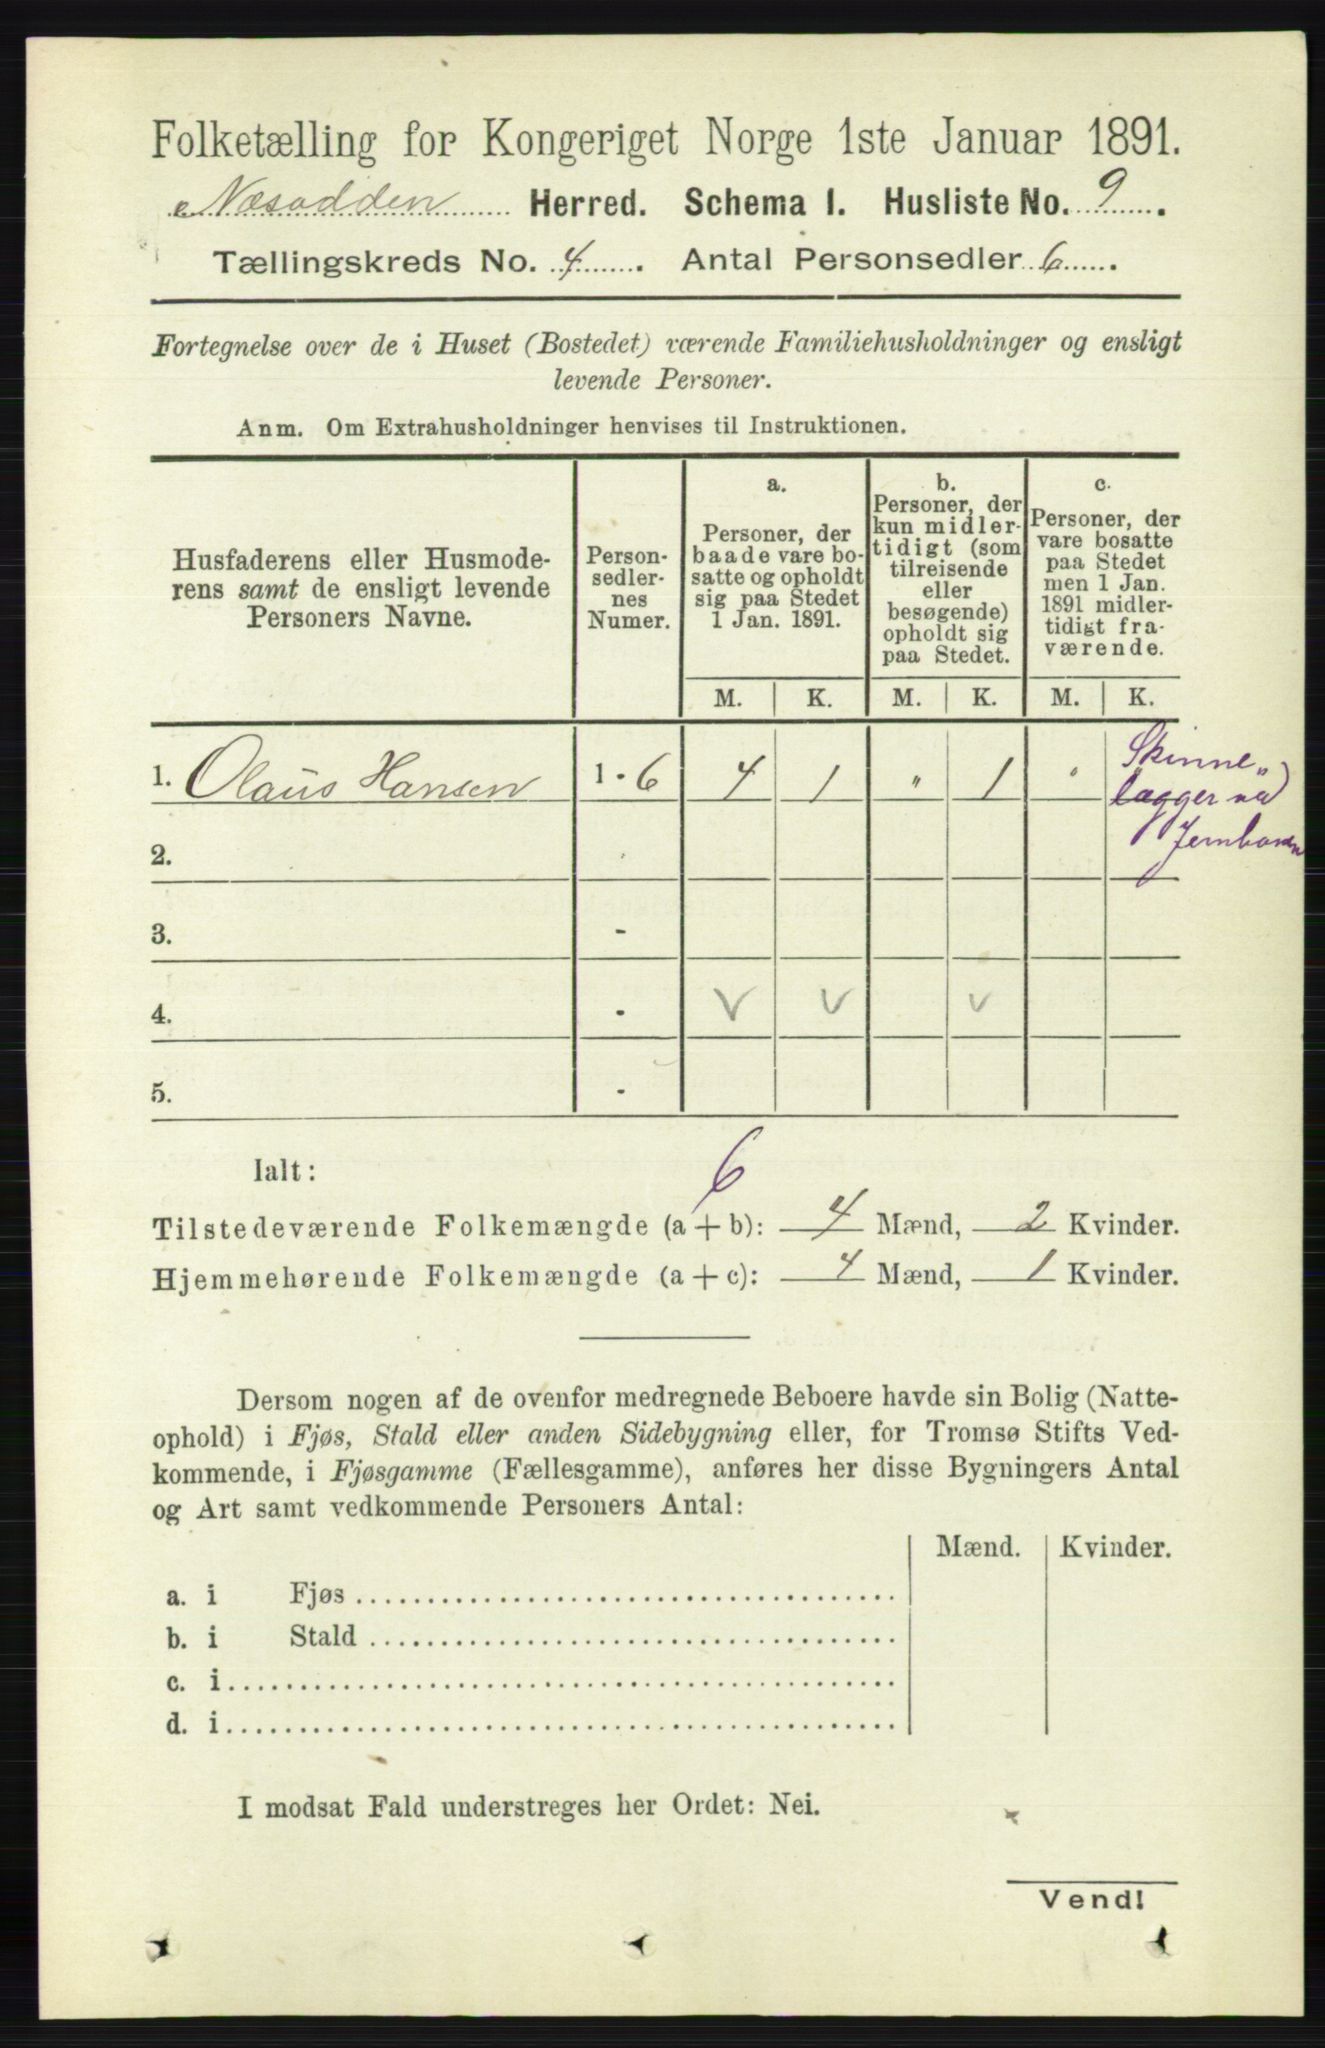 Folketælling for Kongeriget Norge 1ste Januar 1891.
Næsodden Herred. Schema I. Husliste No. 9.
Tællingskreds No. 4. Antal Personsedler 6.
Fortegnelse over de i Huset (Bostedet) værende Familiehusholdninger og ensligt
levende Personer.
Anm. Om Extrahusholdninger henvises til Instruktionen.
Husfaderens eller Husmode-
rens samt de ensligt levende
Personers Navne.
Person-
sedler-
nes
Numer.
a.
Personer, der
baade vare bo-
satte og opholdt
sig paa Stedet
1 Jan. 1891.
b.
Personer, der
kun midler-
tidigt (som
tilreisende
eller
besøgende)
opholdt sig
paa Stedet.
c.
Personer, der
vare bosatte
paa Stedet
men 1 Jan.
1891 midler-
tidigt fra-
værende.
M. K. M. K. M. K.
1. Olaüs Hansen 1 - 6 4 1 " 1 " "
Skinne
lægger ved
Jernbanen
2.
3. -
4. - V V V
5. -
Ialt:
6
Tilstedeværende Folkemængde (a + b): 4 Mænd, 2 Kvinder.
Hjemmehørende Folkemængde (a + c): 4 Mænd, 1 Kvinder.
Dersom nogen af de ovenfor medregnede Beboere havde sin Bolig (Natte-
ophold) i Fjøs, Stald eller anden Sidebygning eller, for Tromsø Stifts Ved-
kommende, i Fjøsgamme (Fællesgamme), anføres her disse Bygningers Antal
og Art samt vedkommende Personers Antal:
Mænd. Kvinder.
a. i Fjøs
b. i Stald
c. i
d. i
I modsat Fald understreges her Ordet: Nei.
Vend!